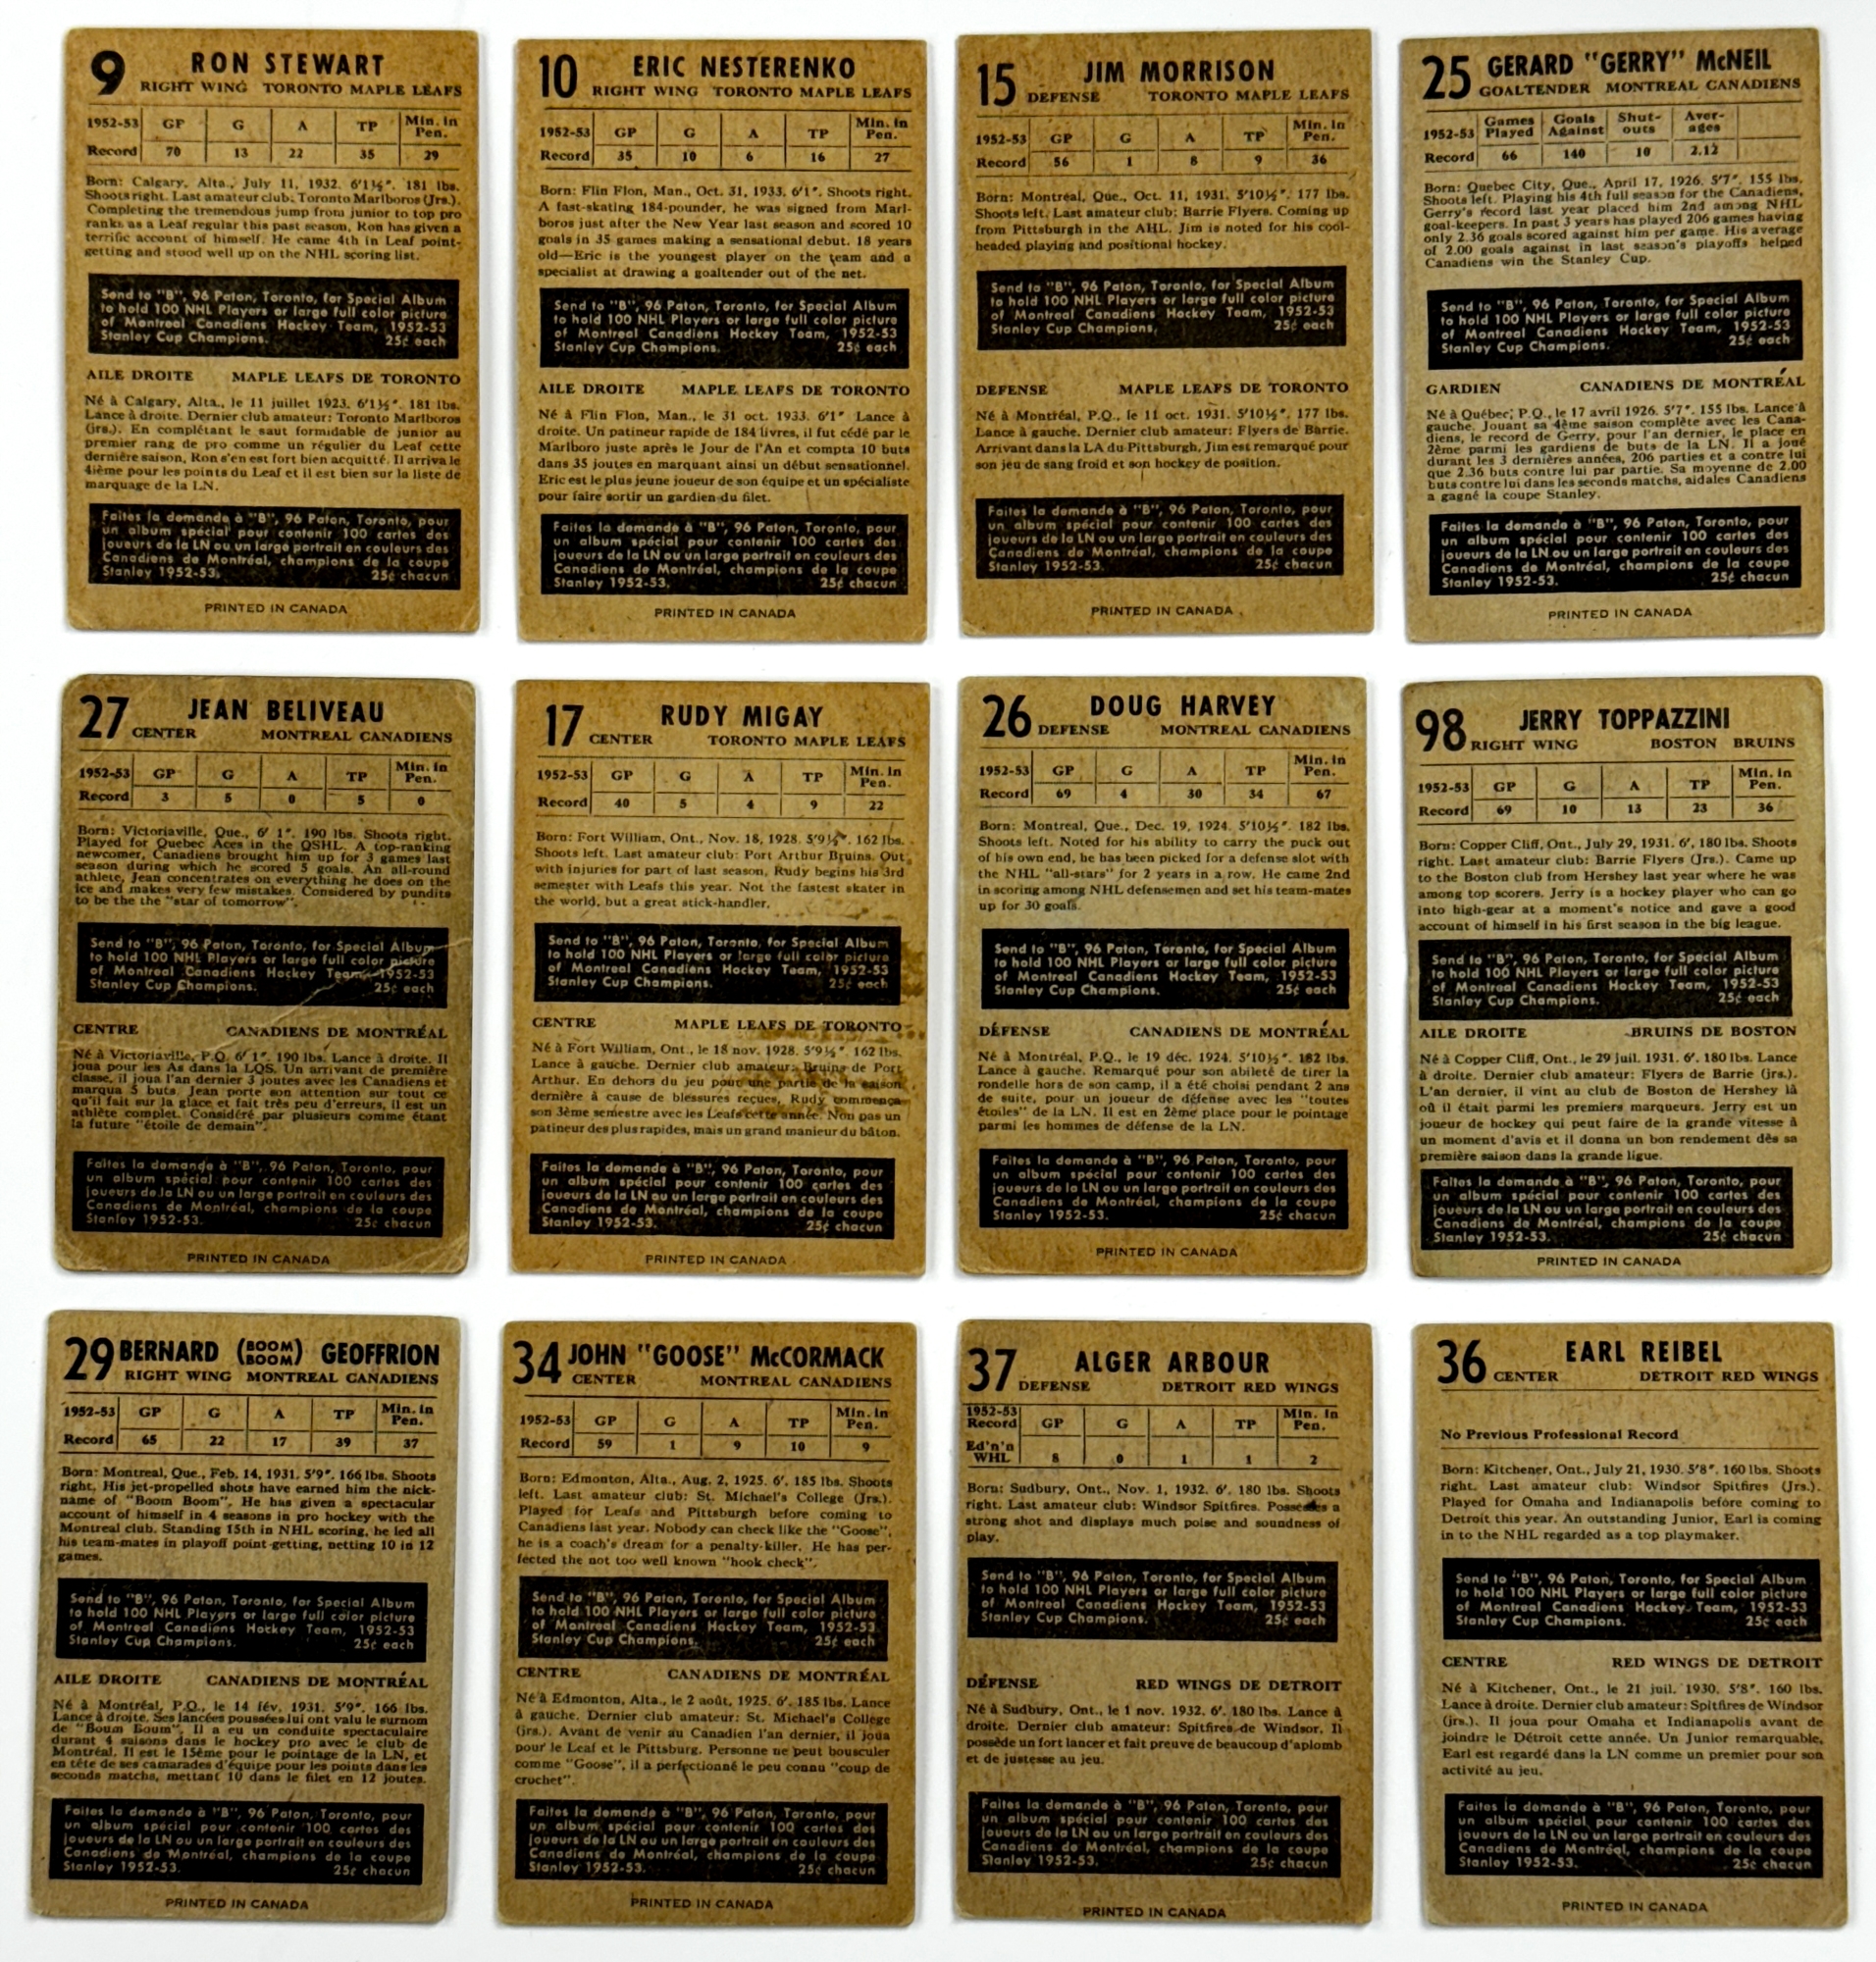 9 RON STEWART
RIGHT WING TORONTO MAPLE LEAFS
1952-53 GP G A TP Min. in Pen.
Record 70 13 22 35 29
Born: Calgary, Alta., July 11, 1932. 6'1½". 181 lbs.
Shoots right. Last amateur club: Toronto Marlboros (Jrs.).
Completing the tremendous jump from junior to top pro
ranks as a Leaf regular this past season, Ron has given a
terrific account of himself. He came 4th in Leaf point-
getting and stood well up on the NHL scoring list.
Send to "B", 96 Paton, Toronto, for Special Album
to hold 100 NHL Players or large full color picture
of Montreal Canadiens Hockey Team, 1952-53
Stanley Cup Champions. 25¢ each
AILE DROITE MAPLE LEAFS DE TORONTO
Né à Calgary, Alta., le 11 juillet 1923. 6'1½". 181 lbs.
Lance à droite. Dernier club amateur: Toronto Marlboros
(jrs.). En complétant le saut formidable de junior au
premier rang de pro comme un régulier du Leaf cette
dernière saison, Ron s'en est fort bien acquitté. Il arriva le
4ième pour les points du Leaf et il est bien sur la liste de
marquage de la LN.
Faites la demande à "B", 96 Paton, Toronto, pour
un album spécial pour contenir 100 cartes des
joueurs de la LN ou un large portrait en couleurs des
Canadiens de Montréal, champions de la coupe
Stanley 1952-53. 25¢ chacun
PRINTED IN CANADA
10 ERIC NESTERENKO
RIGHT WING TORONTO MAPLE LEAFS
1952-53 GP G A TP Min. in Pen.
Record 35 10 6 16 27
Born: Flin Flon, Man., Oct. 31, 1933. 6'1". Shoots right.
A fast-skating 184-pounder, he was signed from Marl-
boros just after the New Year last season and scored 10
goals in 35 games making a sensational debut. 18 years
old—Eric is the youngest player on the team and a
specialist at drawing a goaltender out of the net.
Send to "B", 96 Paton, Toronto, for Special Album
to hold 100 NHL Players or large full color picture
of Montreal Canadiens Hockey Team, 1952-53
Stanley Cup Champions. 25¢ each
AILE DROITE MAPLE LEAFS DE TORONTO
Né à Flin Flon, Man., le 31 oct. 1933. 6'1" Lance à
droite. Un patineur rapide de 184 livres, il fut cédé par le
Marlboro juste après le Jour de l'An et compta 10 buts
dans 35 joutes en marquant ainsi un début sensationnel.
Eric est le plus jeune joueur de son équipe et un spécialiste
pour faire sortir un gardien du filet.
Faites la demande à "B", 96 Paton, Toronto, pour
un album spécial pour contenir 100 cartes des
joueurs de la LN ou un large portrait en couleurs des
Canadiens de Montréal, champions de la coupe
Stanley 1952-53. 25¢ chacun
PRINTED IN CANADA
15 JIM MORRISON
DEFENSE TORONTO MAPLE LEAFS
1952-53 GP G A TP Min. in Pen.
Record 56 1 8 9 36
Born: Montreal, Que., Oct. 11, 1931. 5'10½". 177 lbs.
Shoots left. Last amateur club: Barrie Flyers. Coming up
from Pittsburgh in the AHL. Jim is noted for his cool-
headed playing and positional hockey.
Send to "B", 96 Paton, Toronto, for Special Album
to hold 100 NHL Players or large full color picture
of Montreal Canadiens Hockey Team, 1952-53
Stanley Cup Champions. 25¢ each
DEFENSE MAPLE LEAFS DE TORONTO
Né à Montréal, P.Q., le 11 oct. 1931. 5'10½". 177 lbs.
Lance à gauche. Dernier club amateur: Flyers de Barrie.
Arrivant dans la LA du Pittsburgh, Jim est remarqué pour
son jeu de sang froid et son hockey de position.
Faites la demande à "B", 96 Paton, Toronto, pour
un album spécial pour contenir 100 cartes des
joueurs de la LN ou un large portrait en couleurs des
Canadiens de Montréal, champions de la coupe
Stanley 1952-53. 25¢ chacun
PRINTED IN CANADA
25 GERARD "GERRY" McNEIL
GOALTENDER MONTREAL CANADIENS
1952-53 Games Played Goals Against Shut-outs Aver-ages
Record 66 140 10 2.12
Born: Quebec City, Que., April 17, 1926. 5'7". 155 lbs.
Shoots left. Playing his 4th full season for the Canadiens,
Gerry's record last year placed him 2nd among NHL
goal-keepers. In past 3 years has played 206 games having
only 2.36 goals scored against him per game. His average
of 2.00 goals against in last season's playoffs helped
Canadiens win the Stanley Cup.
Send to "B", 96 Paton, Toronto, for Special Album
to hold 100 NHL Players or large full color picture
of Montreal Canadiens Hockey Team, 1952-53
Stanley Cup Champions. 25¢ each
GARDIEN CANADIENS DE MONTRÉAL
Né à Québec, P.Q., le 17 avril 1926. 5'7". 155 lbs. Lance à
gauche. Jouant sa 4ème saison complète avec les Cana-
diens, le record de Gerry, pour l'an dernier, le place en
2ème parmi les gardiens de buts de la LN. Il a joué
durant les 3 dernières années, 206 parties et a contre lui
que 2.36 buts contre lui par partie. Sa moyenne de 2.00
buts contre lui dans les seconds matchs, aida les Canadiens
a gagné la coupe Stanley.
Faites la demande à "B", 96 Paton, Toronto, pour
un album spécial pour contenir 100 cartes des
joueurs de la LN ou un large portrait en couleurs des
Canadiens de Montréal, champions de la coupe
Stanley 1952-53. 25¢ chacun
PRINTED IN CANADA
27 JEAN BELIVEAU
CENTER MONTREAL CANADIENS
1952-53 GP G A TP Min. in Pen.
Record 3 5 0 5 0
Born: Victoriaville, Que., 6' 1". 190 lbs. Shoots right.
Played for Quebec Aces in the QSHL. A top-ranking
newcomer, Canadiens brought him up for 3 games last
season during which he scored 5 goals. An all-round
athlete, Jean concentrates on everything he does on the
ice and makes very few mistakes. Considered by pundits
to be the the "star of tomorrow".
Send to "B", 96 Paton, Toronto, for Special Album
to hold 100 NHL Players or large full color picture
of Montreal Canadiens Hockey Team, 1952-53
Stanley Cup Champions. 25¢ each
CENTRE CANADIENS DE MONTRÉAL
Né à Victoriaville, P.Q. 6' 1". 190 lbs. Lance à droite. Il
joua pour les As dans la LQS. Un arrivant de première
classe, il joua l'an dernier 3 joutes avec les Canadiens et
marqua 5 buts. Jean porte son attention sur tout ce
qu'il fait sur la glace et fait très peu d'erreurs, il est un
athlète complet. Considéré par plusieurs comme étant
la future "étoile de demain".
Faites la demande à "B", 96 Paton, Toronto, pour
un album spécial pour contenir 100 cartes des
joueurs de la LN ou un large portrait en couleurs des
Canadiens de Montréal, champions de la coupe
Stanley 1952-53. 25¢ chacun
PRINTED IN CANADA
17 RUDY MIGAY
CENTER TORONTO MAPLE LEAFS
1952-53 GP G A TP Min. in Pen.
Record 40 5 4 9 22
Born: Fort William, Ont., Nov. 18, 1928. 5'9½". 162 lbs.
Shoots left. Last amateur club: Port Arthur Bruins. Out
with injuries for part of last season, Rudy begins his 3rd
semester with Leafs this year. Not the fastest skater in
the world, but a great stick-handler.
Send to "B", 96 Paton, Toronto, for Special Album
to hold 100 NHL Players or large full color picture
of Montreal Canadiens Hockey Team, 1952-53
Stanley Cup Champions. 25¢ each
CENTRE MAPLE LEAFS DE TORONTO
Né à Fort William, Ont., le 18 nov. 1928. 5'9½". 162 lbs.
Lance à gauche. Dernier club amateur: Bruins de Port
Arthur. En dehors du jeu pour une partie de la saison
dernière à cause de blessures reçues, Rudy commença
son 3ème semestre avec les Leafs cette année. Non pas un
patineur des plus rapides, mais un grand manieur du bâton.
Faites la demande à "B", 96 Paton, Toronto, pour
un album spécial pour contenir 100 cartes des
joueurs de la LN ou un large portrait en couleurs des
Canadiens de Montréal, champions de la coupe
Stanley 1952-53. 25¢ chacun
PRINTED IN CANADA
26 DOUG HARVEY
DEFENSE MONTREAL CANADIENS
1952-53 GP G A TP Min. in Pen.
Record 69 4 30 34 67
Born: Montreal, Que., Dec. 19, 1924. 5'10½". 182 lbs.
Shoots left. Noted for his ability to carry the puck out
of his own end, he has been picked for a defense slot with
the NHL "all-stars" for 2 years in a row. He came 2nd
in scoring among NHL defensemen and set his team-mates
up for 30 goals.
Send to "B", 96 Paton, Toronto, for Special Album
to hold 100 NHL Players or large full color picture
of Montreal Canadiens Hockey Team, 1952-53
Stanley Cup Champions. 25¢ each
DÉFENSE CANADIENS DE MONTRÉAL
Né à Montréal, P.Q., le 19 déc. 1924. 5'10½". 182 lbs.
Lance à gauche. Remarqué pour son abileté de tirer la
rondelle hors de son camp, il a été choisi pendant 2 ans
de suite, pour un joueur de défense avec les "toutes
étoiles" de la LN. Il est en 2ème place pour le pointage
parmi les hommes de défense de la LN.
Faites la demande à "B", 96 Paton, Toronto, pour
un album spécial pour contenir 100 cartes des
joueurs de la LN ou un large portrait en couleurs des
Canadiens de Montréal, champions de la coupe
Stanley 1952-53. 25¢ chacun
PRINTED IN CANADA
98 JERRY TOPPAZZINI
RIGHT WING BOSTON BRUINS
1952-53 GP G A TP Min. in Pen.
Record 69 10 13 23 36
Born: Copper Cliff, Ont., July 29, 1931. 6', 180 lbs. Shoots
right. Last amateur club: Barrie Flyers (Jrs.). Came up
to the Boston club from Hershey last year where he was
among top scorers. Jerry is a hockey player who can go
into high-gear at a moment's notice and gave a good
account of himself in his first season in the big league.
Send to "B", 96 Paton, Toronto, for Special Album
to hold 100 NHL Players or large full color picture
of Montreal Canadiens Hockey Team, 1952-53
Stanley Cup Champions. 25¢ each
AILE DROITE BRUINS DE BOSTON
Né à Copper Cliff, Ont., le 29 juil. 1931. 6'. 180 lbs. Lance
à droite. Dernier club amateur: Flyers de Barrie (jrs.).
L'an dernier, il vint au club de Boston de Hershey là
où il était parmi les premiers marqueurs. Jerry est un
joueur de hockey qui peut faire de la grande vitesse à
un moment d'avis et il donna un bon rendement dès sa
première saison dans la grande ligue.
Faites la demande à "B", 96 Paton, Toronto, pour
un album spécial pour contenir 100 cartes des
joueurs de la LN ou un large portrait en couleurs des
Canadiens de Montréal, champions de la coupe
Stanley 1952-53. 25¢ chacun
PRINTED IN CANADA
29 BERNARD (BOOM BOOM) GEOFFRION
RIGHT WING MONTREAL CANADIENS
1952-53 GP G A TP Min. in Pen.
Record 65 22 17 39 37
Born: Montreal, Que., Feb. 14, 1931. 5'9". 166 lbs. Shoots
right. His jet-propelled shots have earned him the nick-
name of "Boom Boom". He has given a spectacular
account of himself in 4 seasons in pro hockey with the
Montreal club. Standing 15th in NHL scoring, he led all
his team-mates in playoff point-getting, netting 10 in 12
games.
Send to "B", 96 Paton, Toronto, for Special Album
to hold 100 NHL Players or large full color picture
of Montreal Canadiens Hockey Team, 1952-53
Stanley Cup Champions. 25¢ each
AILE DROITE CANADIENS DE MONTRÉAL
Né à Montréal, P.Q., le 14 fév. 1931. 5'9". 166 lbs.
Lance à droite. Ses lancées poussées lui ont valu le surnom
de "Boum Boum". Il a eu un conduite spectaculaire
durant 4 saisons dans le hockey pro avec le club de
Montréal. Il est le 15ème pour le pointage de la LN, et
en tête de ses camarades d'équipe pour les points dans les
seconds matchs, mettant 10 dans le filet en 12 joutes.
Faites la demande à "B", 96 Paton, Toronto, pour
un album spécial pour contenir 100 cartes des
joueurs de la LN ou un large portrait en couleurs des
Canadiens de Montréal, champions de la coupe
Stanley 1952-53. 25¢ chacun
PRINTED IN CANADA
34 JOHN "GOOSE" McCORMACK
CENTER MONTREAL CANADIENS
1952-53 GP G A TP Min. in Pen.
Record 59 1 9 10 9
Born: Edmonton, Alta., Aug. 2, 1925. 6'. 185 lbs. Shoots
left. Last amateur club: St. Michael's College (Jrs.).
Played for Leafs and Pittsburgh before coming to
Canadiens last year. Nobody can check like the "Goose",
he is a coach's dream for a penalty-killer. He has per-
fected the not too well known "hook check".
Send to "B", 96 Paton, Toronto, for Special Album
to hold 100 NHL Players or large full color picture
of Montreal Canadiens Hockey Team, 1952-53
Stanley Cup Champions. 25¢ each
CENTRE CANADIENS DE MONTRÉAL
Né à Edmonton, Alta., le 2 août, 1925. 6'. 185 lbs. Lance
à gauche. Dernier club amateur: St. Michael's College
(jrs.). Avant de venir au Canadien l'an dernier, il joua
pour le Leaf et le Pittsburg. Personne ne peut bousculer
comme "Goose", il a perfectionné le peu connu "coup de
crochet".
Faites la demande à "B", 96 Paton, Toronto, pour
un album spécial pour contenir 100 cartes des
joueurs de la LN ou un large portrait en couleurs des
Canadiens de Montréal, champions de la coupe
Stanley 1952-53. 25¢ chacun
PRINTED IN CANADA
37 ALGER ARBOUR
DEFENSE DETROIT RED WINGS
1952-53 Record GP G A TP Min. in Pen.
Ed'n'n WHL 8 0 1 1 2
Born: Sudbury, Ont., Nov. 1, 1932. 6'. 180 lbs. Shoots
right. Last amateur club: Windsor Spitfires. Possesses a
strong shot and displays much poise and soundness of
play.
Send to "B", 96 Paton, Toronto, for Special Album
to hold 100 NHL Players or large full color picture
of Montreal Canadiens Hockey Team, 1952-53
Stanley Cup Champions. 25¢ each
DÉFENSE RED WINGS DE DETROIT
Né à Sudbury, Ont., le 1 nov. 1932. 6'. 180 lbs. Lance à
droite. Dernier club amateur: Spitfires de Windsor. Il
possède un fort lancer et fait preuve de beaucoup d'aplomb
et de justesse au jeu.
Faites la demande à "B", 96 Paton, Toronto, pour
un album spécial pour contenir 100 cartes des
joueurs de la LN ou un large portrait en couleurs des
Canadiens de Montréal, champions de la coupe
Stanley 1952-53. 25¢ chacun
PRINTED IN CANADA
36 EARL REIBEL
CENTER DETROIT RED WINGS
No Previous Professional Record
Born: Kitchener, Ont., July 21, 1930. 5'8". 160 lbs. Shoots
right. Last amateur club: Windsor Spitfires (Jrs.).
Played for Omaha and Indianapolis before coming to
Detroit this year. An outstanding Junior, Earl is coming
in to the NHL regarded as a top playmaker.
Send to "B", 96 Paton, Toronto, for Special Album
to hold 100 NHL Players or large full color picture
of Montreal Canadiens Hockey Team, 1952-53
Stanley Cup Champions. 25¢ each
CENTRE RED WINGS DE DETROIT
Né à Kitchener, Ont., le 21 juil. 1930. 5'8". 160 lbs.
Lance à droite. Dernier club amateur: Spitfires de Windsor
(jrs.). Il joua pour Omaha et Indianapolis avant de
joindre le Détroit cette année. Un Junior remarquable,
Earl est regardé dans la LN comme un premier pour son
activité au jeu.
Faites la demande à "B", 96 Paton, Toronto, pour
un album spécial pour contenir 100 cartes des
joueurs de la LN ou un large portrait en couleurs des
Canadiens de Montréal, champions de la coupe
Stanley 1952-53. 25¢ chacun
PRINTED IN CANADA